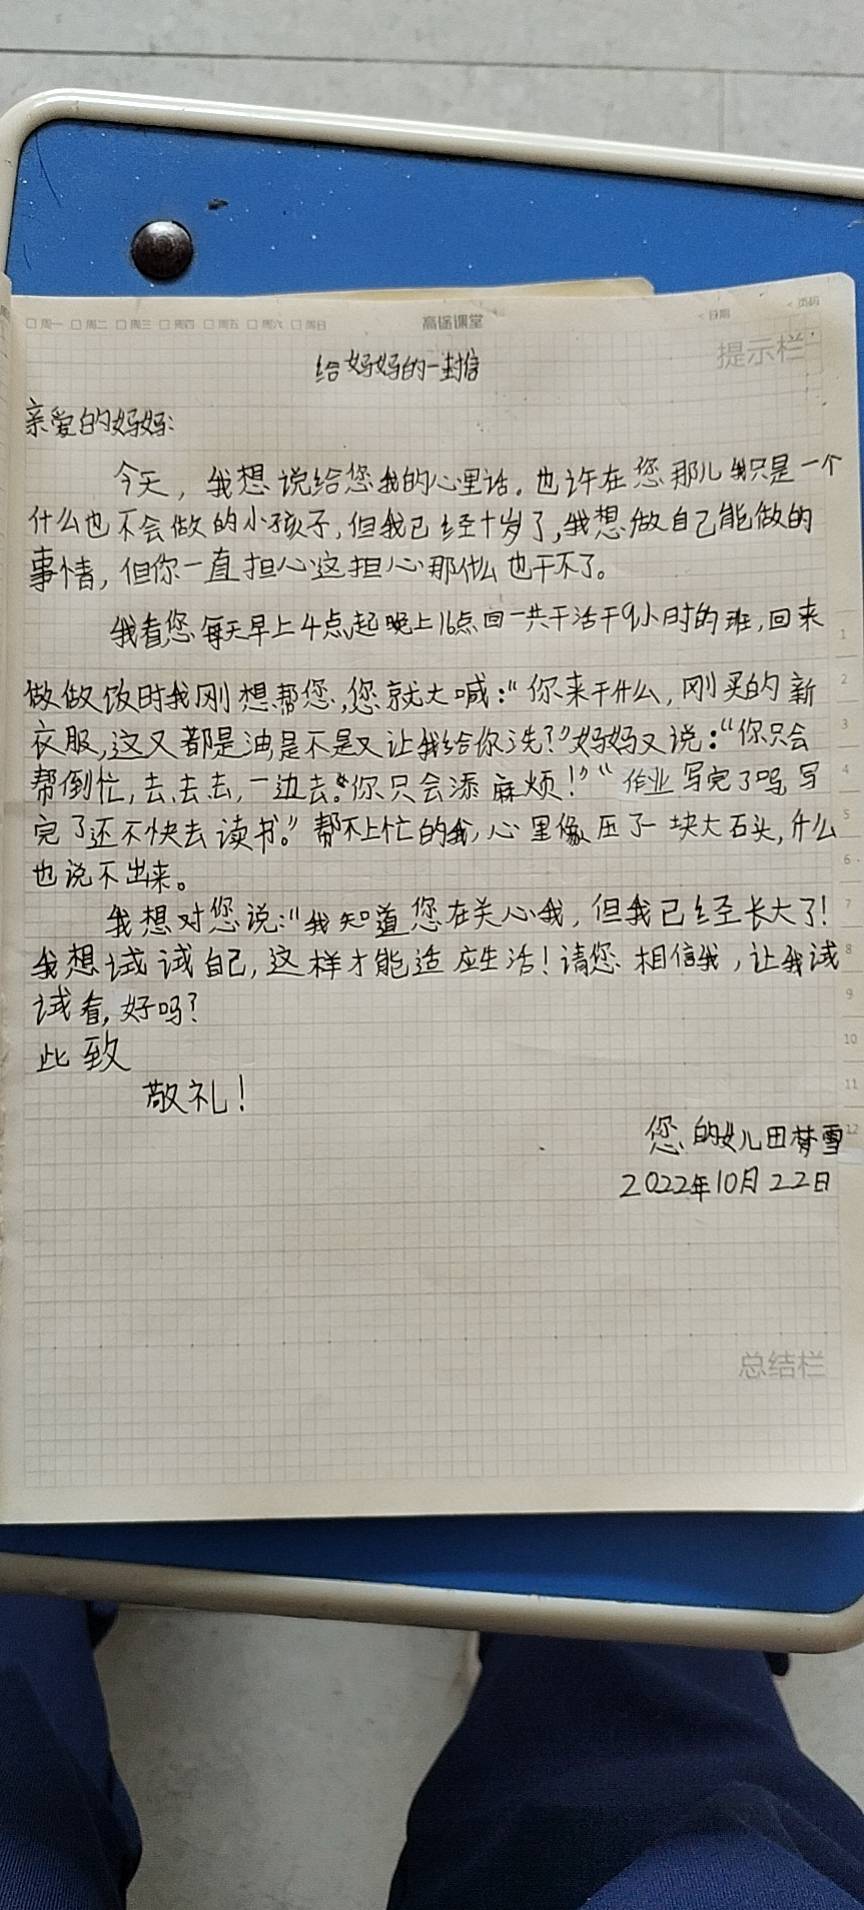 周一 周二 周三 周四 周五 周六 周日 高途课堂 日期 页码
提示栏
给妈妈的一封信
亲爱的妈妈:
今天，我想说给您我的心里话。也许在您那儿我只是一个
什么也不会做的小孩子，但我已经十岁了，我想做自己能做的
事情，但你一直担心这担心那什么也干不了。
我看您每天早上4点起晚上16点回一共干活干9小时的班，回来
做做饭时我刚想帮您，您就大喊：“你来干什么，刚买的新
衣服，这又都是油，是不是又让我给你洗？”妈妈又说：“你只会
帮倒忙，去、去、去，一边去。你只会添麻烦！”“作业写完了吗，写
完了还不快去读书。”帮不上忙的我，心里像压了一块大石头，什么
也说不出来。
我想对您说：“我知道您在关心我，但我已经长大了！
我想试试自己，这样才能适应生活！请您相信我，让我试
试看，好吗？
此致
敬礼！
您的女儿田梦雪
2022年10月22日
1
2
3
4
5
6
7
8
9
10
11
12
总结栏